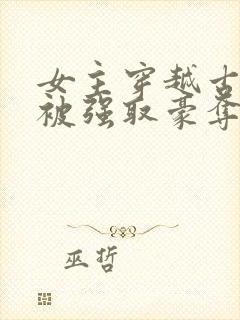 女主穿越古
被强取豪夺
巫哲